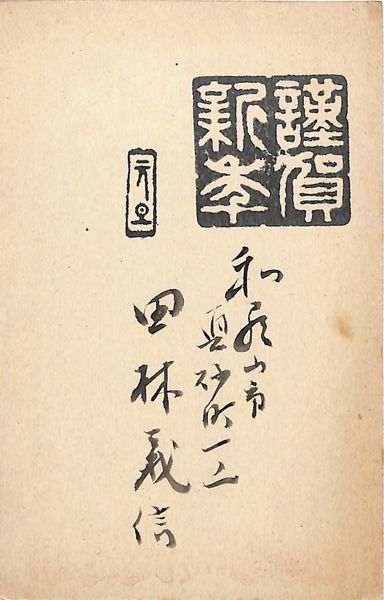 謹賀
新年
元旦
和歌山市
真砂町一ノ二
田林義信